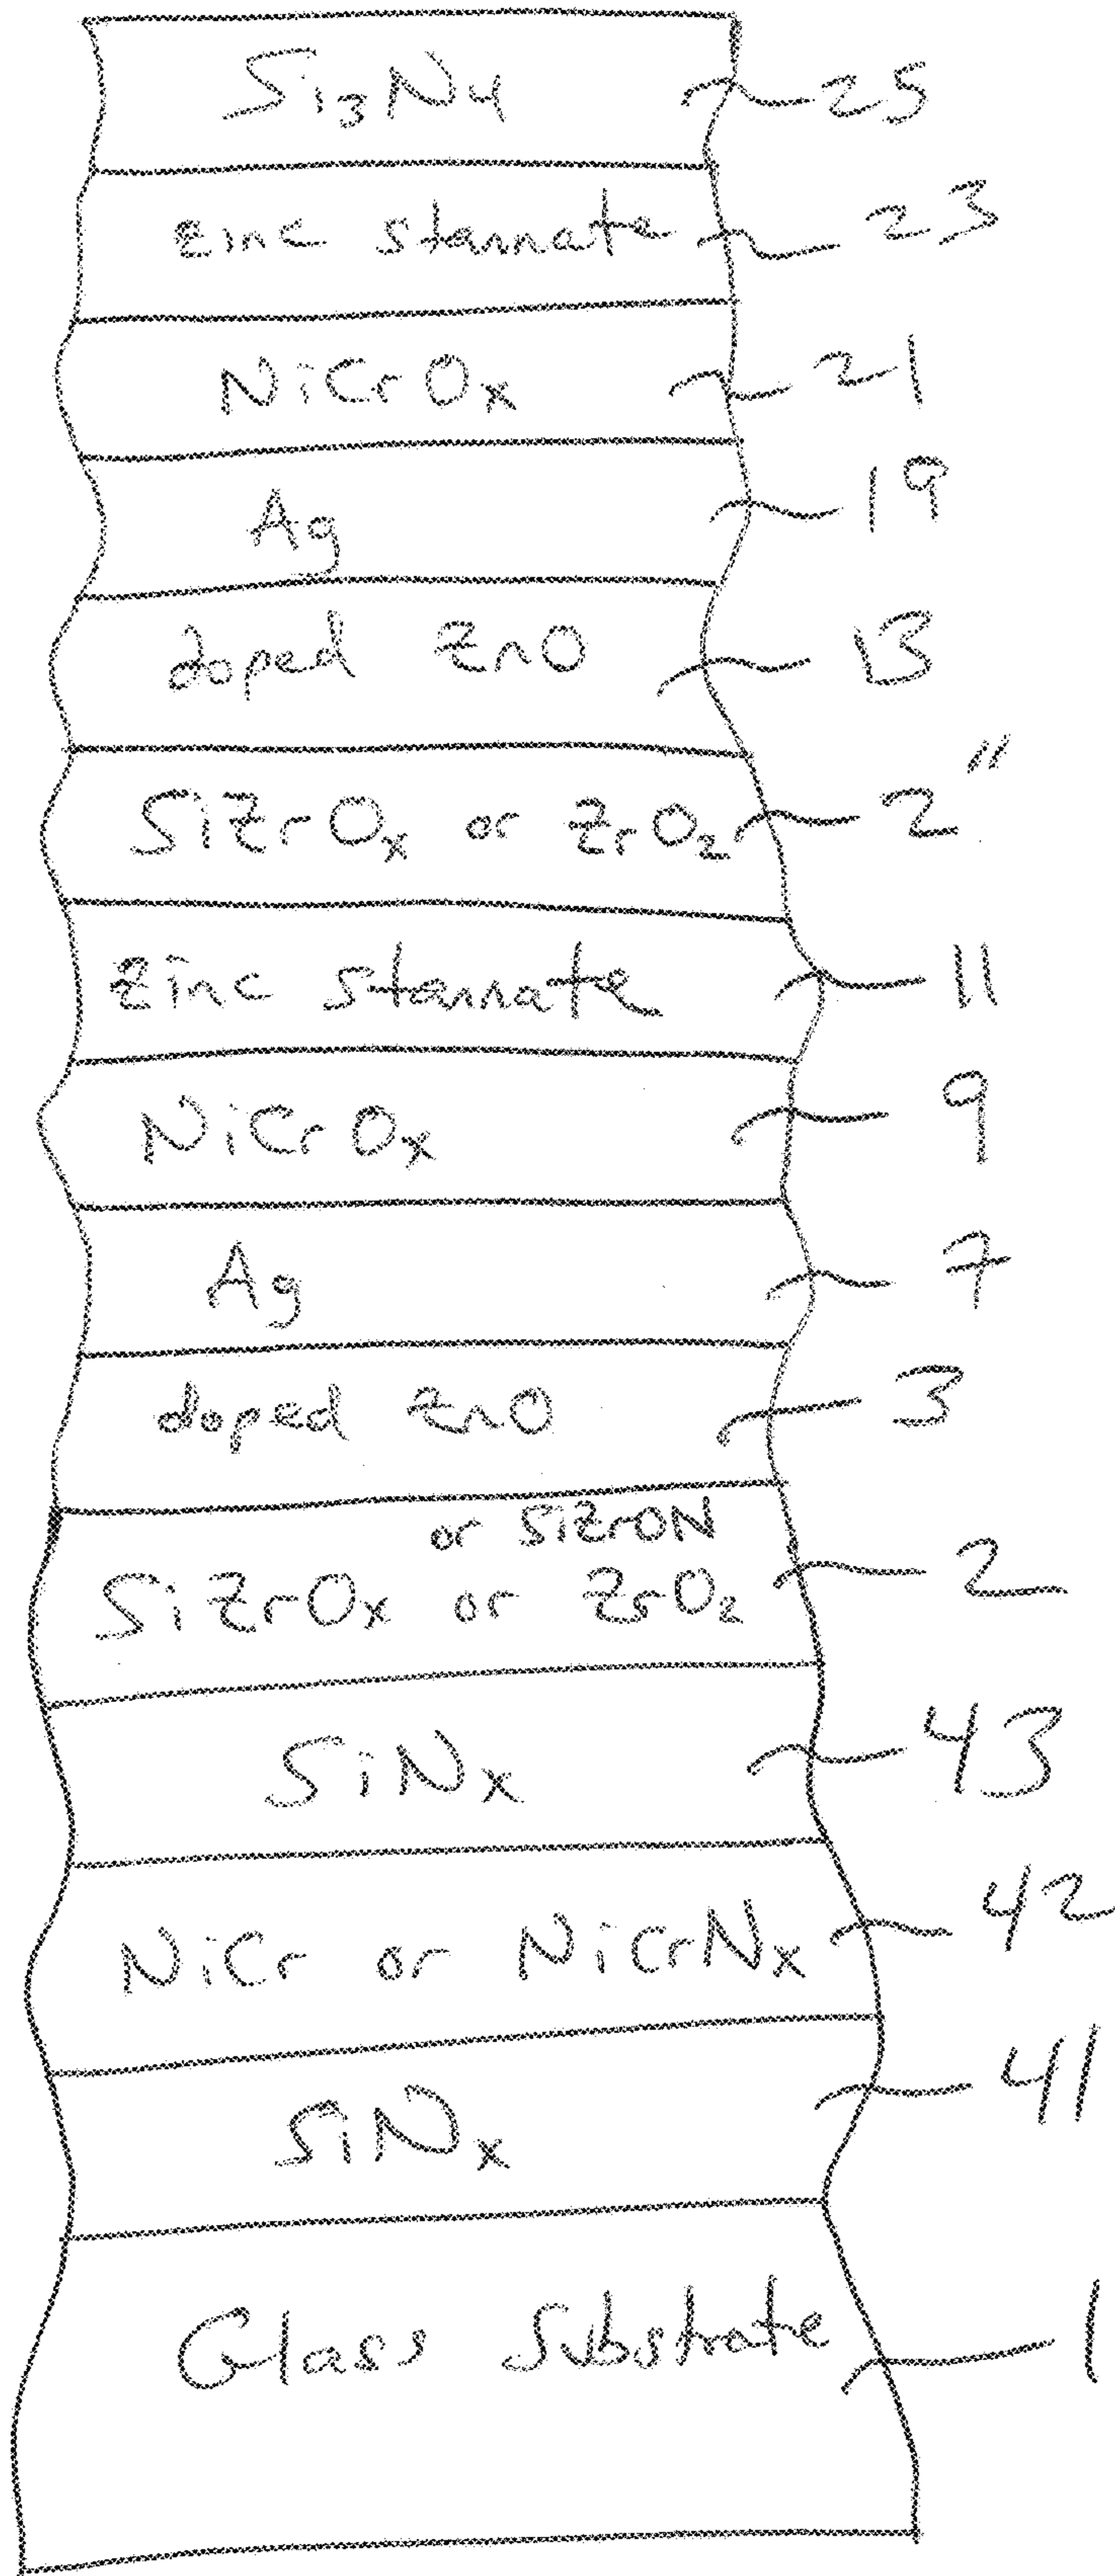 Si3N4 25
zinc stannate 23
NiCrOx 21
Ag 19
doped ZnO 13
SiZrOx or ZrO2 2"
Zinc stannate 11
NiCrOx 9
Ag 7
doped ZnO 3
or SiZrON
SiZrOx or ZrO2 2
SiNx 43
NiCr or NiCrNx 42
SiNx 41
Glass Substrate 1